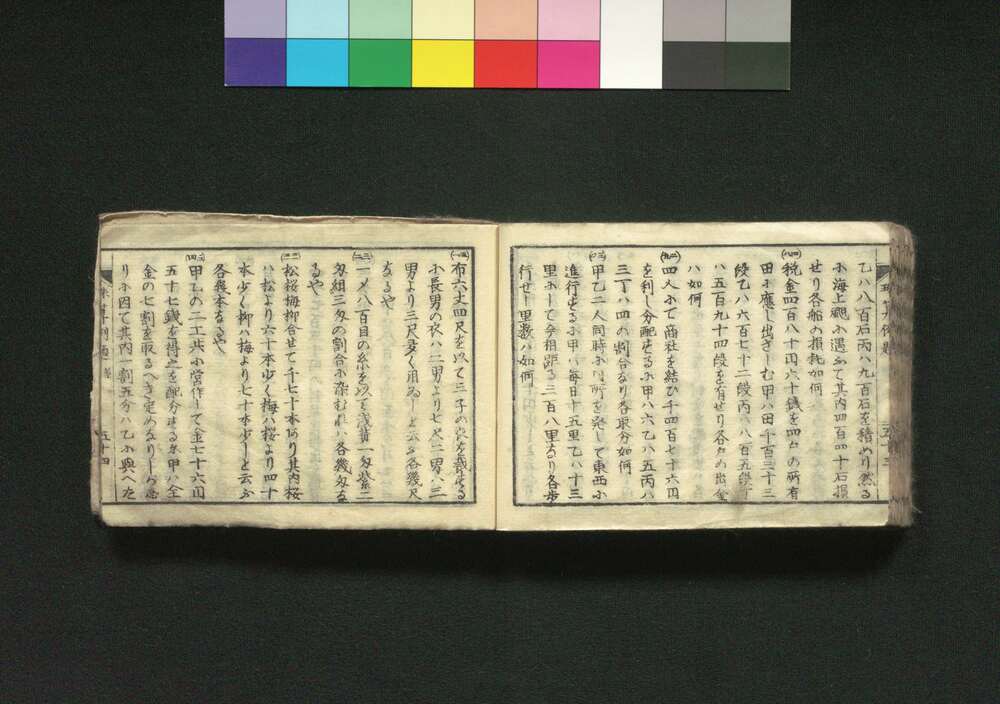 乙ハ八百石丙ハ九百石を積めり然る
に海上颶に遇ふて其内四百四十石損
せり各船の損耗如何
(十八)
税金四百八十円六十銭を四人の所有
田に應し出さしむ甲ハ田千百三十三
段乙ハ六百七十二段丙ハ八百五段丁
ハ五百九十四段を有せり各々の出金
ハ如何
(十九)
四人にて商社を結ひ千四百七十六円
を利し分配せるに甲ハ六乙ハ五丙ハ
三丁ハ四の割合なり各取分如何
(二十)
甲乙二人同時に同所を発して東西に
進行せるに甲ハ毎日十五里乙ハ十三
里にして今相距る三百八里なり各歩
行せし里数ハ如何
(二一)
布六丈四尺を以て三子の衣を裁せる
に長男の衣ハ二男より七尺二男ハ三
男より三尺多く用ゐしと云ふ各幾尺
なるや
(二二)
一〆八百目の糸を以て浅黄一匁紫二
匁組三匁の割合に染むれハ各幾匁な
るや
(二三)
松桜梅柳合せて千七十本あり其内桜
ハ松より六十本少く梅ハ桜より四十
本少く柳ハ梅より七十本少しと云ふ
各幾本なるや
(二四)
甲乙の二工共に営作して金七十六円
五十七銭を得之を配分せるに甲ハ全
金の七割を取るへき定めなりしか
りに因て其内一割五分ハ乙に與へた
五十四